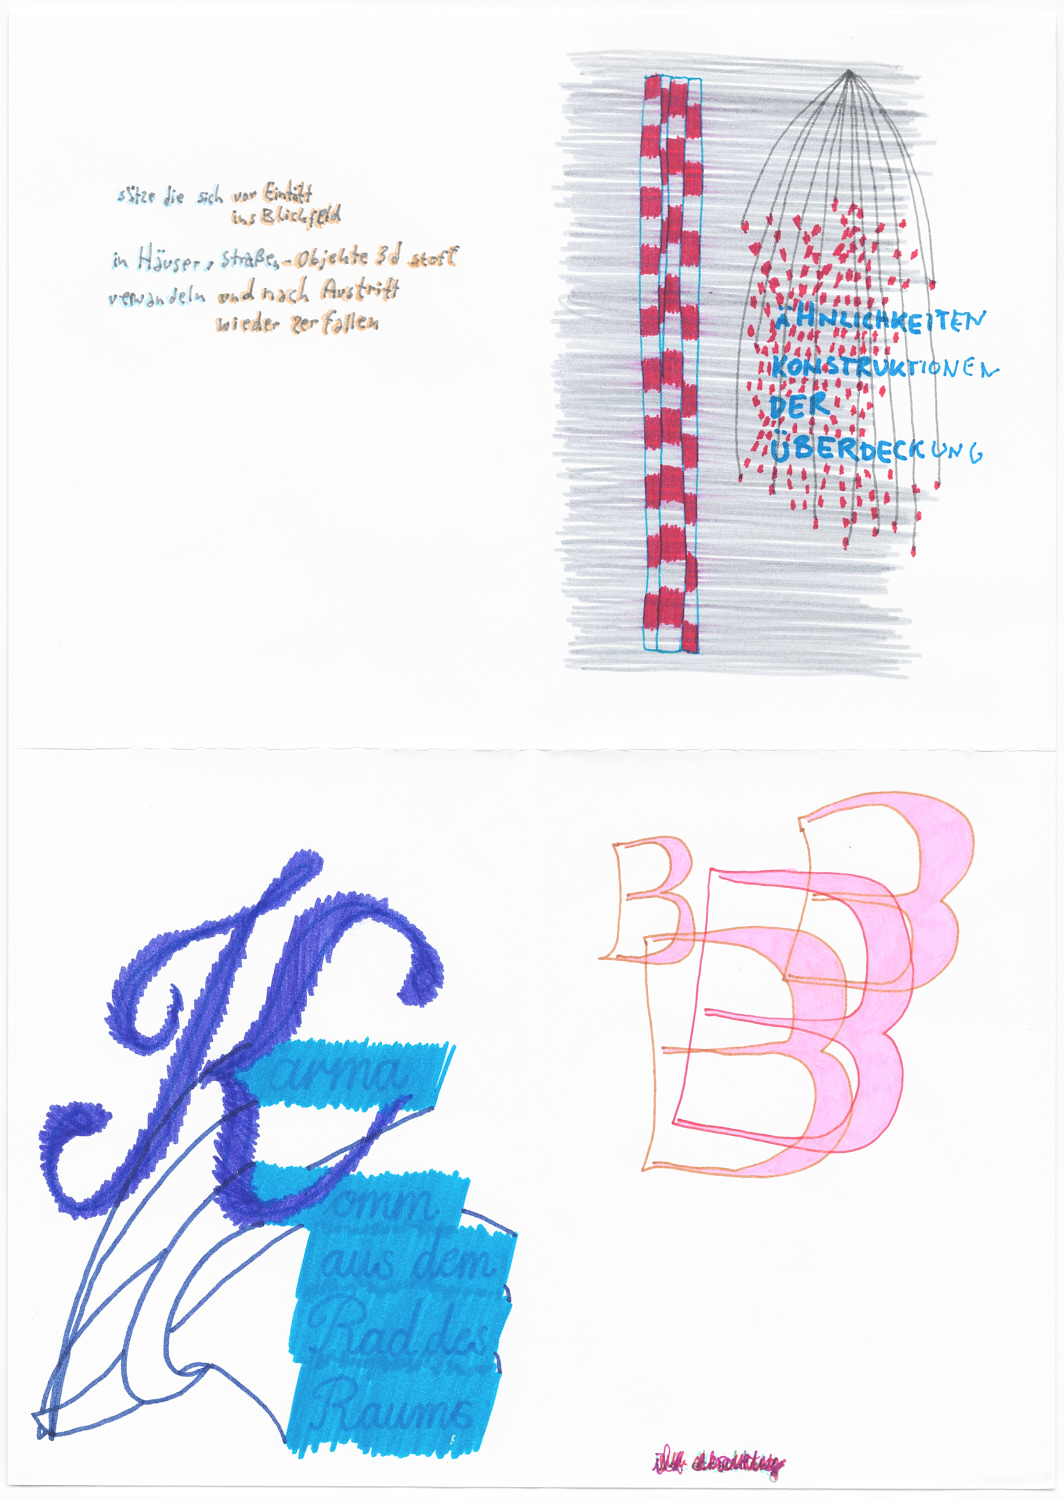 sätze die sich vor Eintitt
ins Blickfeld
in Häuser, Straßen-Objekte 3d stoff
verwandeln und nach Austritt
wieder zerfallen
ÄHNLICHKEITEN
KONSTRUKTIONEN
DER
ÜBERDECKUNG
Karma
Komm
aus dem
Rad des
Raums
B
B
B
B